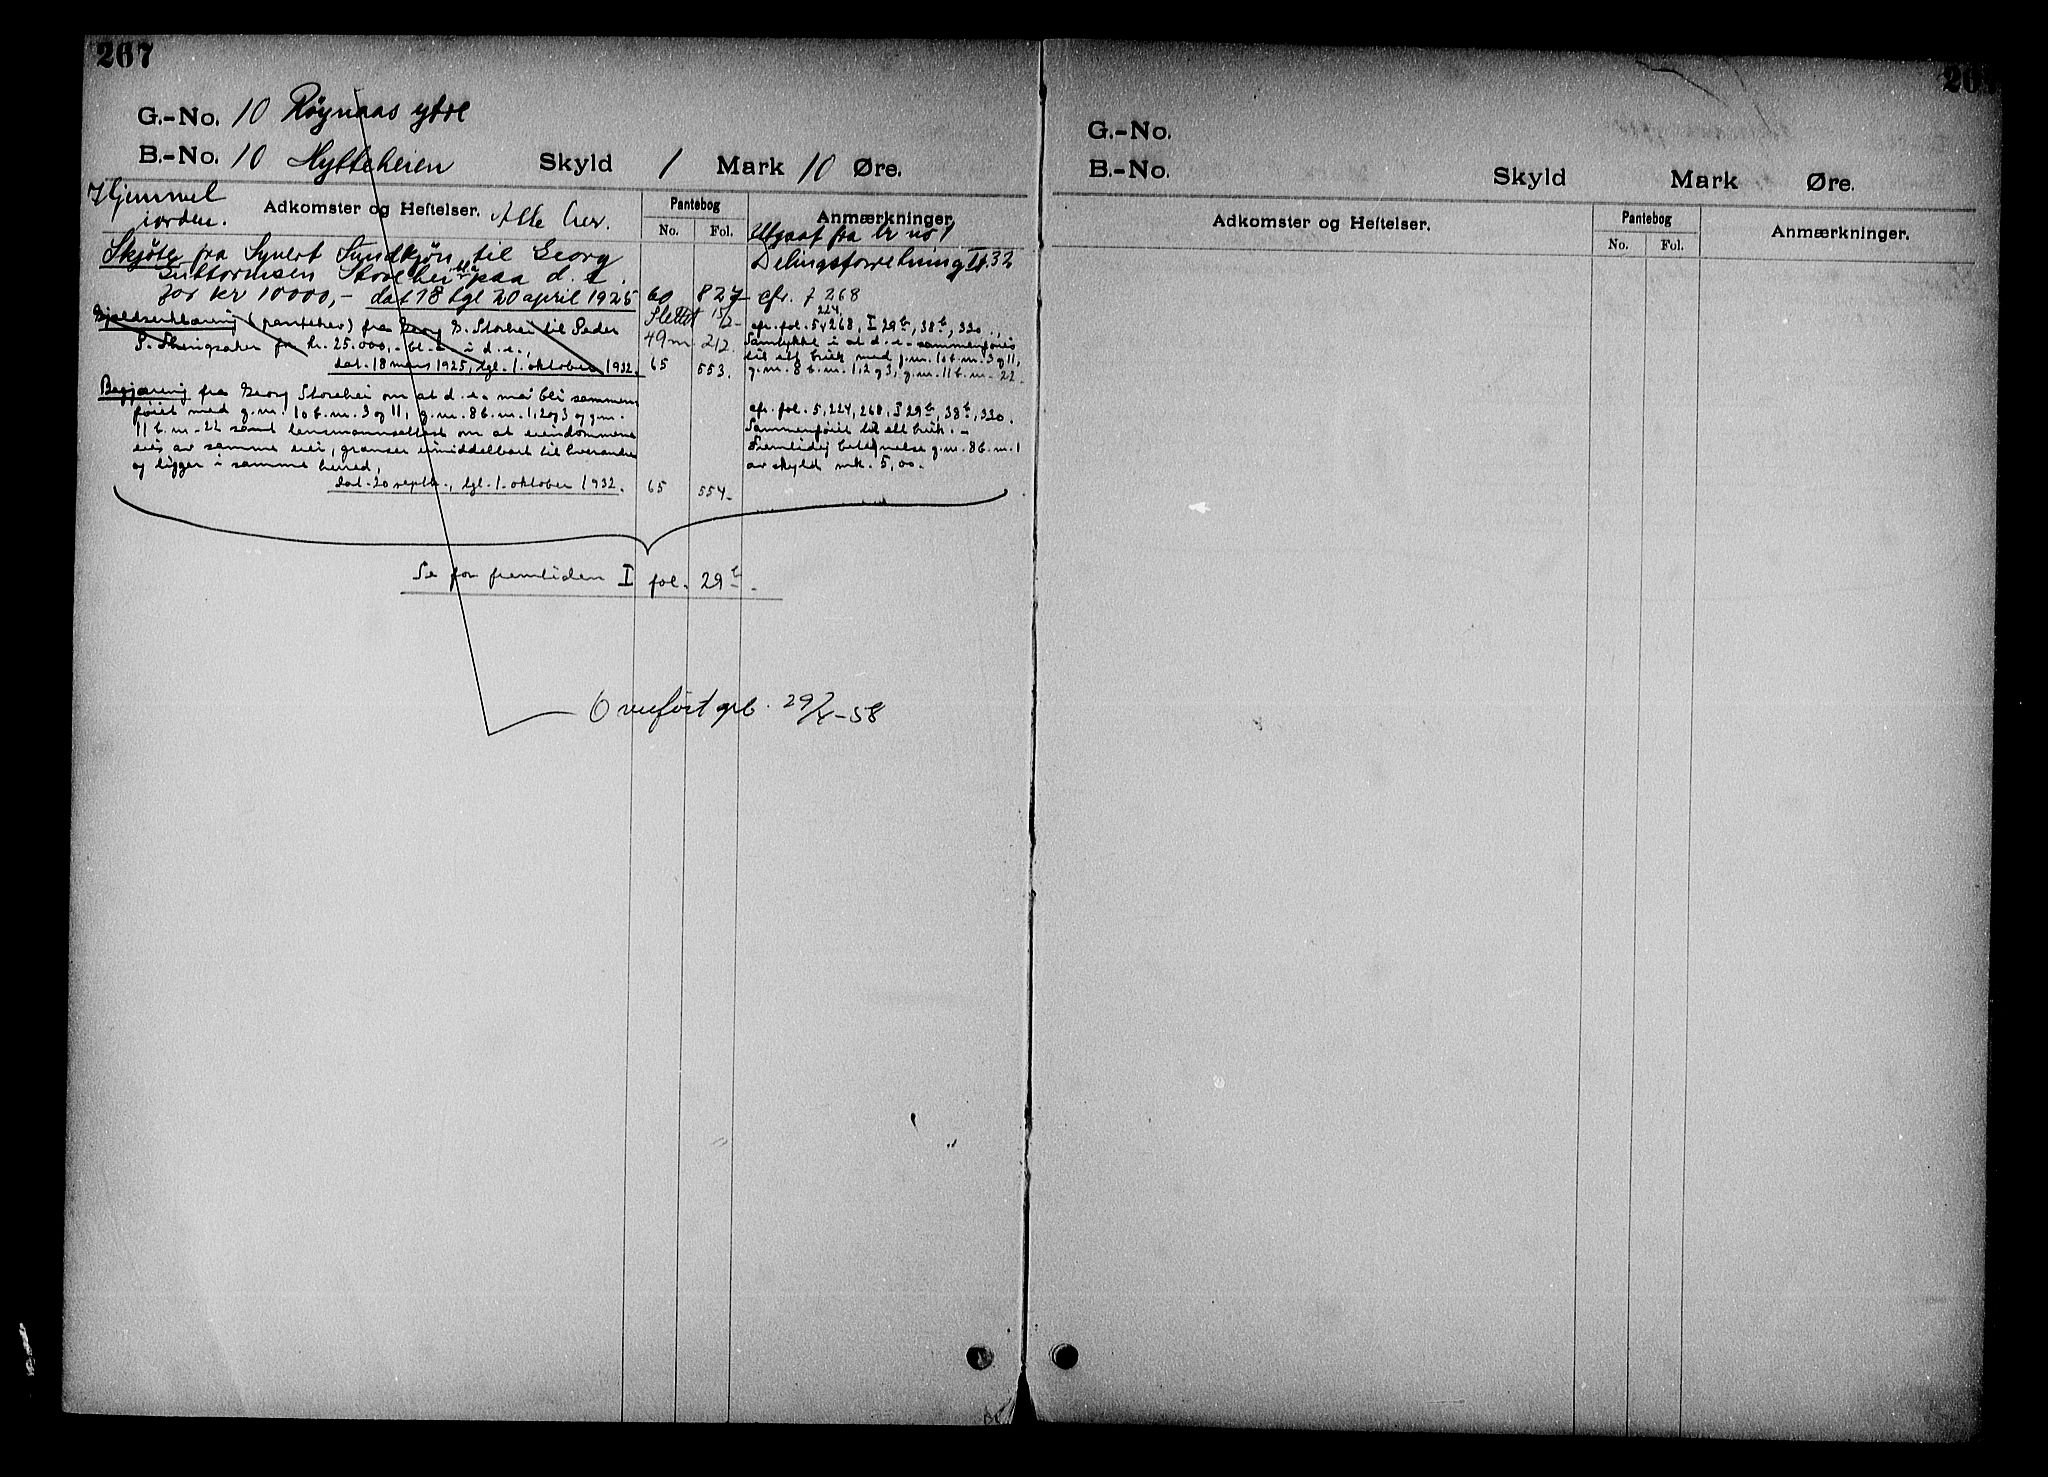 267
G.-No. 10 Røynaas ytre
B.-No. 10 Hytteheien Skyld 1 Mark 10 Øre.
Hjemmel
iorden.
Adkomster og Heftelser.
Pantebog
No. Fol.
Anmærkninger.
Utgaat fra br no 1
Skjøte fra Syvert Sundkjøn til Georg
Delingsforretning
Guttormsen Storehei paa d. e.
for kr 10000,- dat 18 tgl 20 april 1925 60 827 cfr. f 268
Slettet 15/2-
Gjældserklæring (pantebrev) fra Georg G. Storehei til Peder
P. Skeingsaker for kr. 25.000,- bl. a. i d. e.,
49 m. 212.
dat. 18 mars 1925, tgl. 1. oktober 1932. 65 553.
224,
cfr. fol. 5, 268, I 29 b, 38 b, 320.,
Samtykke i at d. e. sammenføies
til ett bruk med g.nr. 10 b.nr. 3 og 11,
g.nr. 8 b.nr. 1, 2 og 3, g.nr. 11 b.nr. 22.
Begjæring fra Georg Storehei om at d. e. må bli sammen
føiet med g.nr. 10 b.nr. 3 og 11, g.nr. 8 b.nr. 1, 2 og 3 og g.nr.
11 b.nr. 22 samt lensmannsattest om at eiendommene
eies av samme eier, grenser umiddelbart til hverandre
og ligger i samme herred,
dat. 20 septbr., tgl. 1. oktober 1932. 65 554.
cfr. fol. 5, 224, 268, I 29 b, 38 b, 320.
Sammenføiet til ett bruk. -
Fremtidig betegnelse g.nr. 8 b.nr. 1
av skyld mk. 5,00.
Se for fremtiden I fol. 29 b.
Overført grb. 29/4-58
G.-No.
B.-No. Skyld Mark Øre.
Adkomster og Heftelser.
Pantebog
No. Fol.
Anmærkninger.